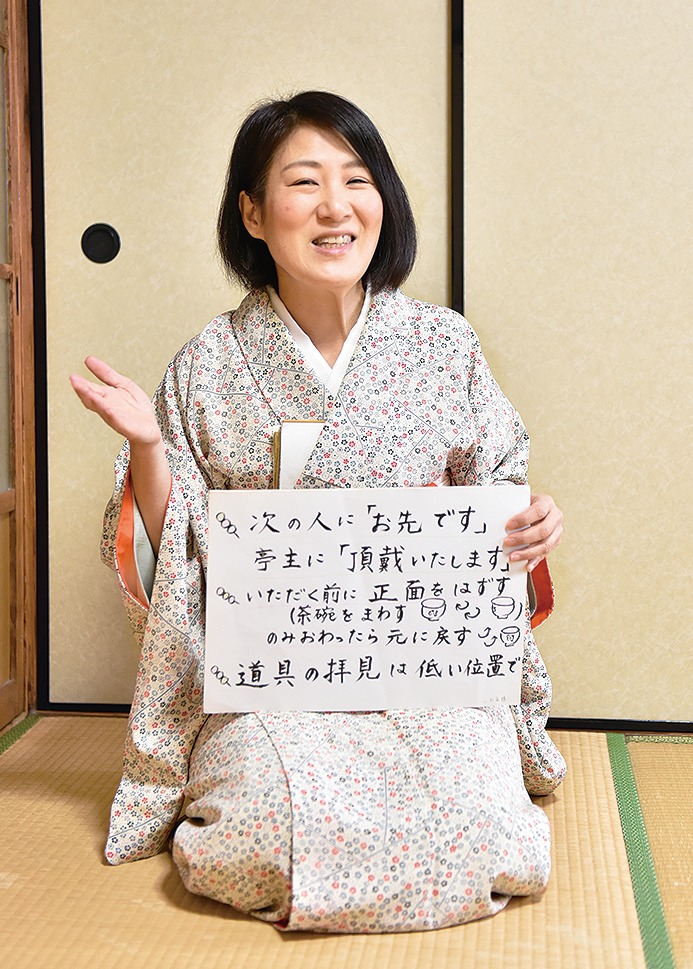 次の人に「お先です」
亭主に「頂戴いたします」
いただく前に正面をはずす
(茶碗をまわす)
のみおわったら元に戻す
道具の拝見は低い位置で